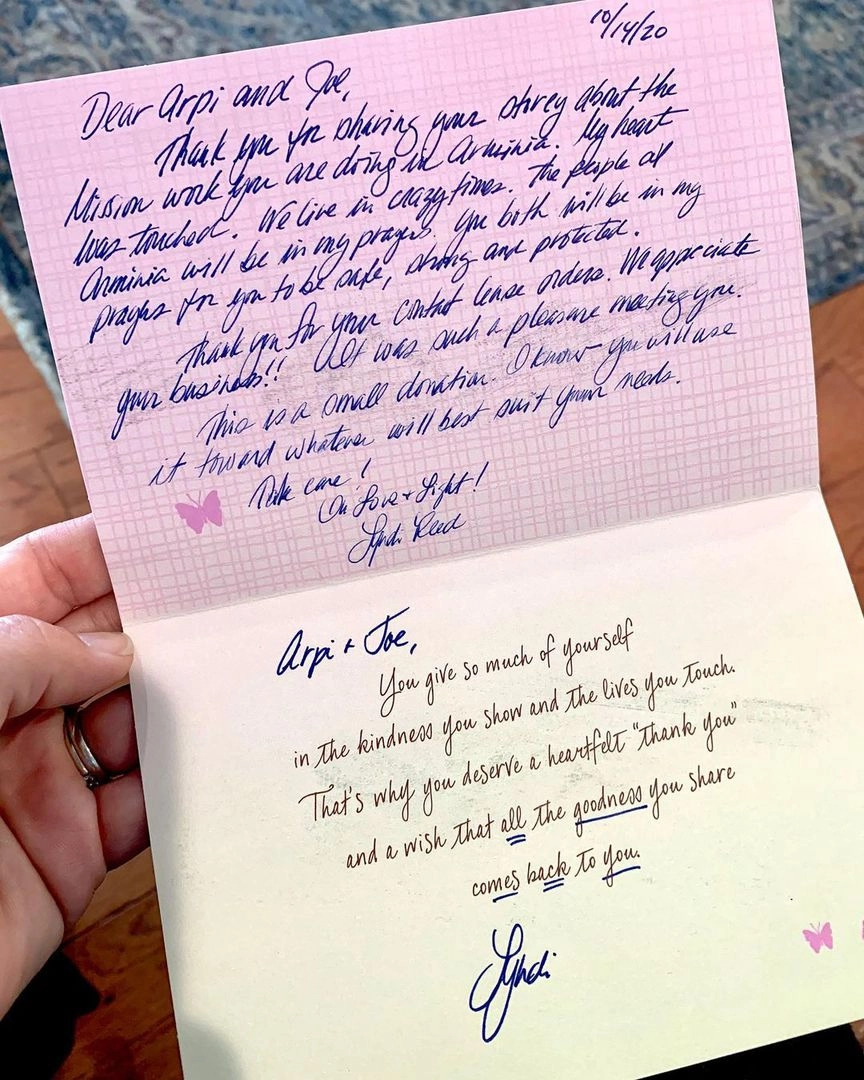 10/14/20
Dear Arpi and Joe,
Thank you for sharing your storey about the
Mission work you are doing in Arminia. My heart
was touched. We live in crazy times. The people of
Arminia will be in my prayers. You both will be in my
prayers for you to be safe, strong and protected.
Thank you for your contact lense orders. We appreciate
your business!! It was such a pleasure meeting you.
This is a small donation. I know you will use
it toward whatever will best suit your needs.
Take care!
In Love + Light!
Lyndi Reed
Arpi + Joe,
You give so much of yourself
in the kindness you show and the lives you touch.
That's why you deserve a heartfelt "thank you"
and a wish that all the goodness you share
comes back to you.
Lyndi